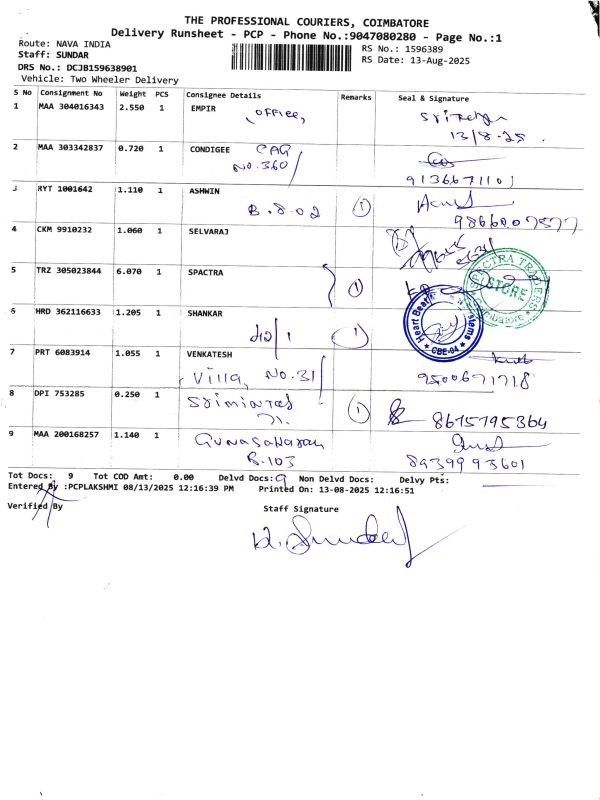 THE PROFESSIONAL COURIERS, COIMBATORE
Delivery Runsheet - PCP - Phone No.:9047080280 - Page No.:1
Route: NAVA INDIA
Staff: SUNDAR
DRS No.: DCJB159638901
Vehicle: Two Wheeler Delivery
RS No.: 1596389
RS Date: 13-Aug-2025
S No Consignment No Weight PCS Consignee Details Remarks Seal & Signature
1 MAA 304016343 2.550 1 EMPIR
office,
13/8-25.
2 MAA 303342837 0.720 1 CONDIGEE
No.360
9136671101
3 RYT 1001642 1.110 1 ASHWIN
B.802 1
4 CKM 9910232 1.060 1 SELVARAJ
5 TRZ 305023844 6.070 1 SPACTRA
1
TRADERS
STORE
6 HRD 362116633 1.205 1 SHANKAR
1
Heart Beat
CBE-04
7 PRT 6083914 1.055 1 VENKATESH
Villa, No.31
9500671718
8 DPI 753285 0.250 1
1 8675795364
9 MAA 200168257 1.140 1
B.103
8939993601
Tot Docs: 9 Tot COD Amt: 0.00 Delvd Docs: 9 Non Delvd Docs: Delvy Pts:
Entered By :PCPLAKSHMI 08/13/2025 12:16:39 PM Printed On: 13-08-2025 12:16:51
Verified By Staff Signature